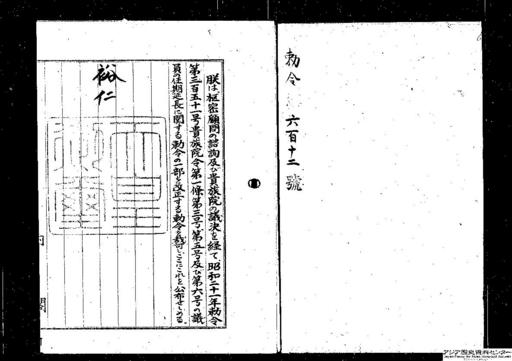 勅令
六百十二號
朕は、枢密顧問の諮詢及び貴族院の議決を経て、昭和二十一年勅令
第三百五十一号貴族院令第一條第三号、第五号及び第六号の議
員の任期延長に関する勅令の一部を改正する勅令を裁可し、ここにこれを公布せしめる。
裕仁
アジア歴史資料センター